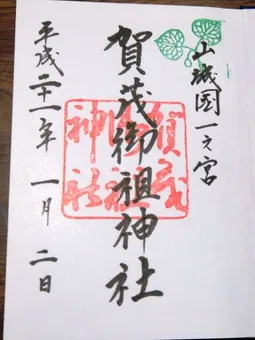 山城国一之宮
賀茂御祖神社
賀茂御祖神社
平成二十一年一月二日